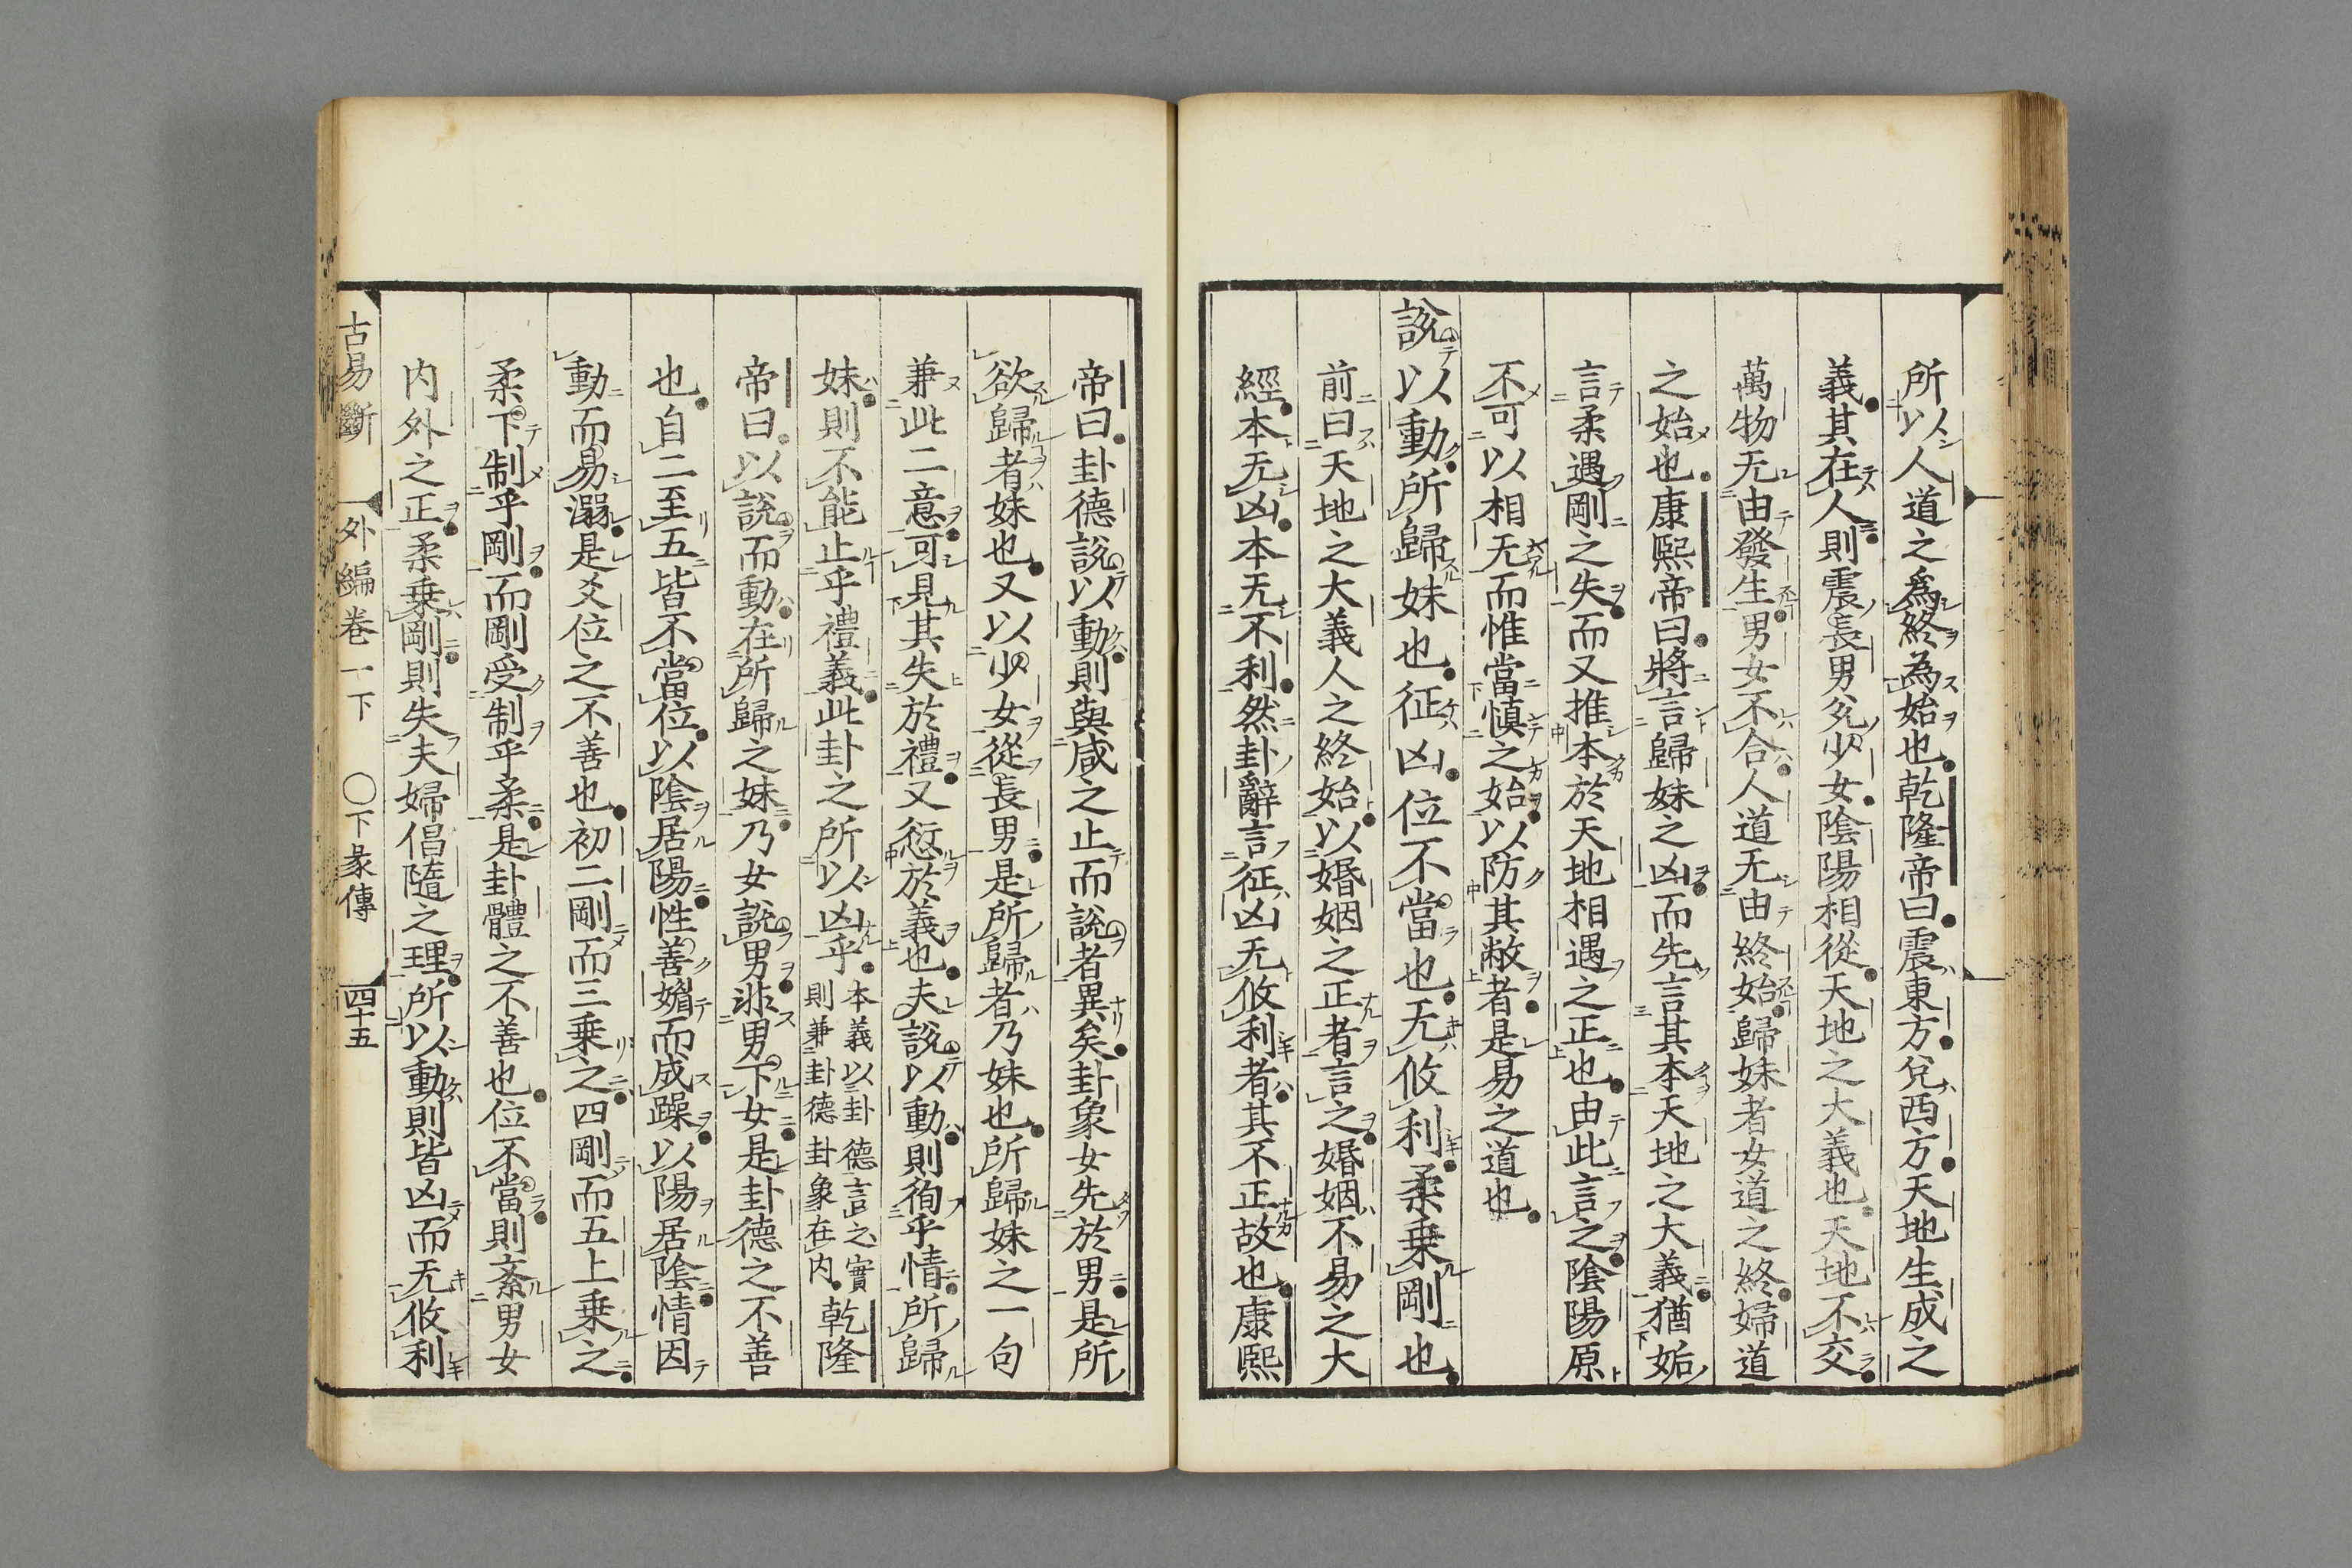 所以人道之爲終為始也乾隆帝曰震東方兌西方天地生成之
義其在人則震長男兌少女陰陽相從天地之大義也天地不交
萬物无由發生男女不合人道无由終始歸妹者女道之終婦道
之始也康熙帝曰將言歸妹之凶而先言其本天地之大義猶姤
言柔遇剛之失而又推本於天地相遇之正也由此言之陰陽原
不可以相无而惟當慎之始以防其敝者是易之道也
說以動所歸妹也征凶位不當也无攸利柔乗剛也
前曰天地之大義人之終始以婚姻之正者言之婚姻不易之大
經本无凶本无不利然卦辭言征凶无攸利者其不正故也康熙
帝曰卦德說以動則與咸之止而說者異矣卦象女先於男是所
欲歸者妹也又以少女從長男是所歸者乃妹也所歸妹之一句
兼此二意可見其失於禮又愆於義也夫說以動則徇乎情所歸
妹則不能止乎禮義此卦之所以凶乎本義以卦德言之實
則兼卦德卦象在内乾隆
帝曰以說而動在所歸之妹乃女說男非男下女是卦德之不善
也自二至五皆不當位以陰居陽性善媚而成躁以陽居陰情因
動而易溺是爻位之不善也初二剛而三乗之四剛而五上乗之
柔下制乎剛而剛受制乎柔是卦體之不善也位不當則紊男女
内外之正柔乗剛則失夫婦倡隨之理所以動則皆凶而无攸利
古易斷 外編卷一下 〇下彖傳 四十五